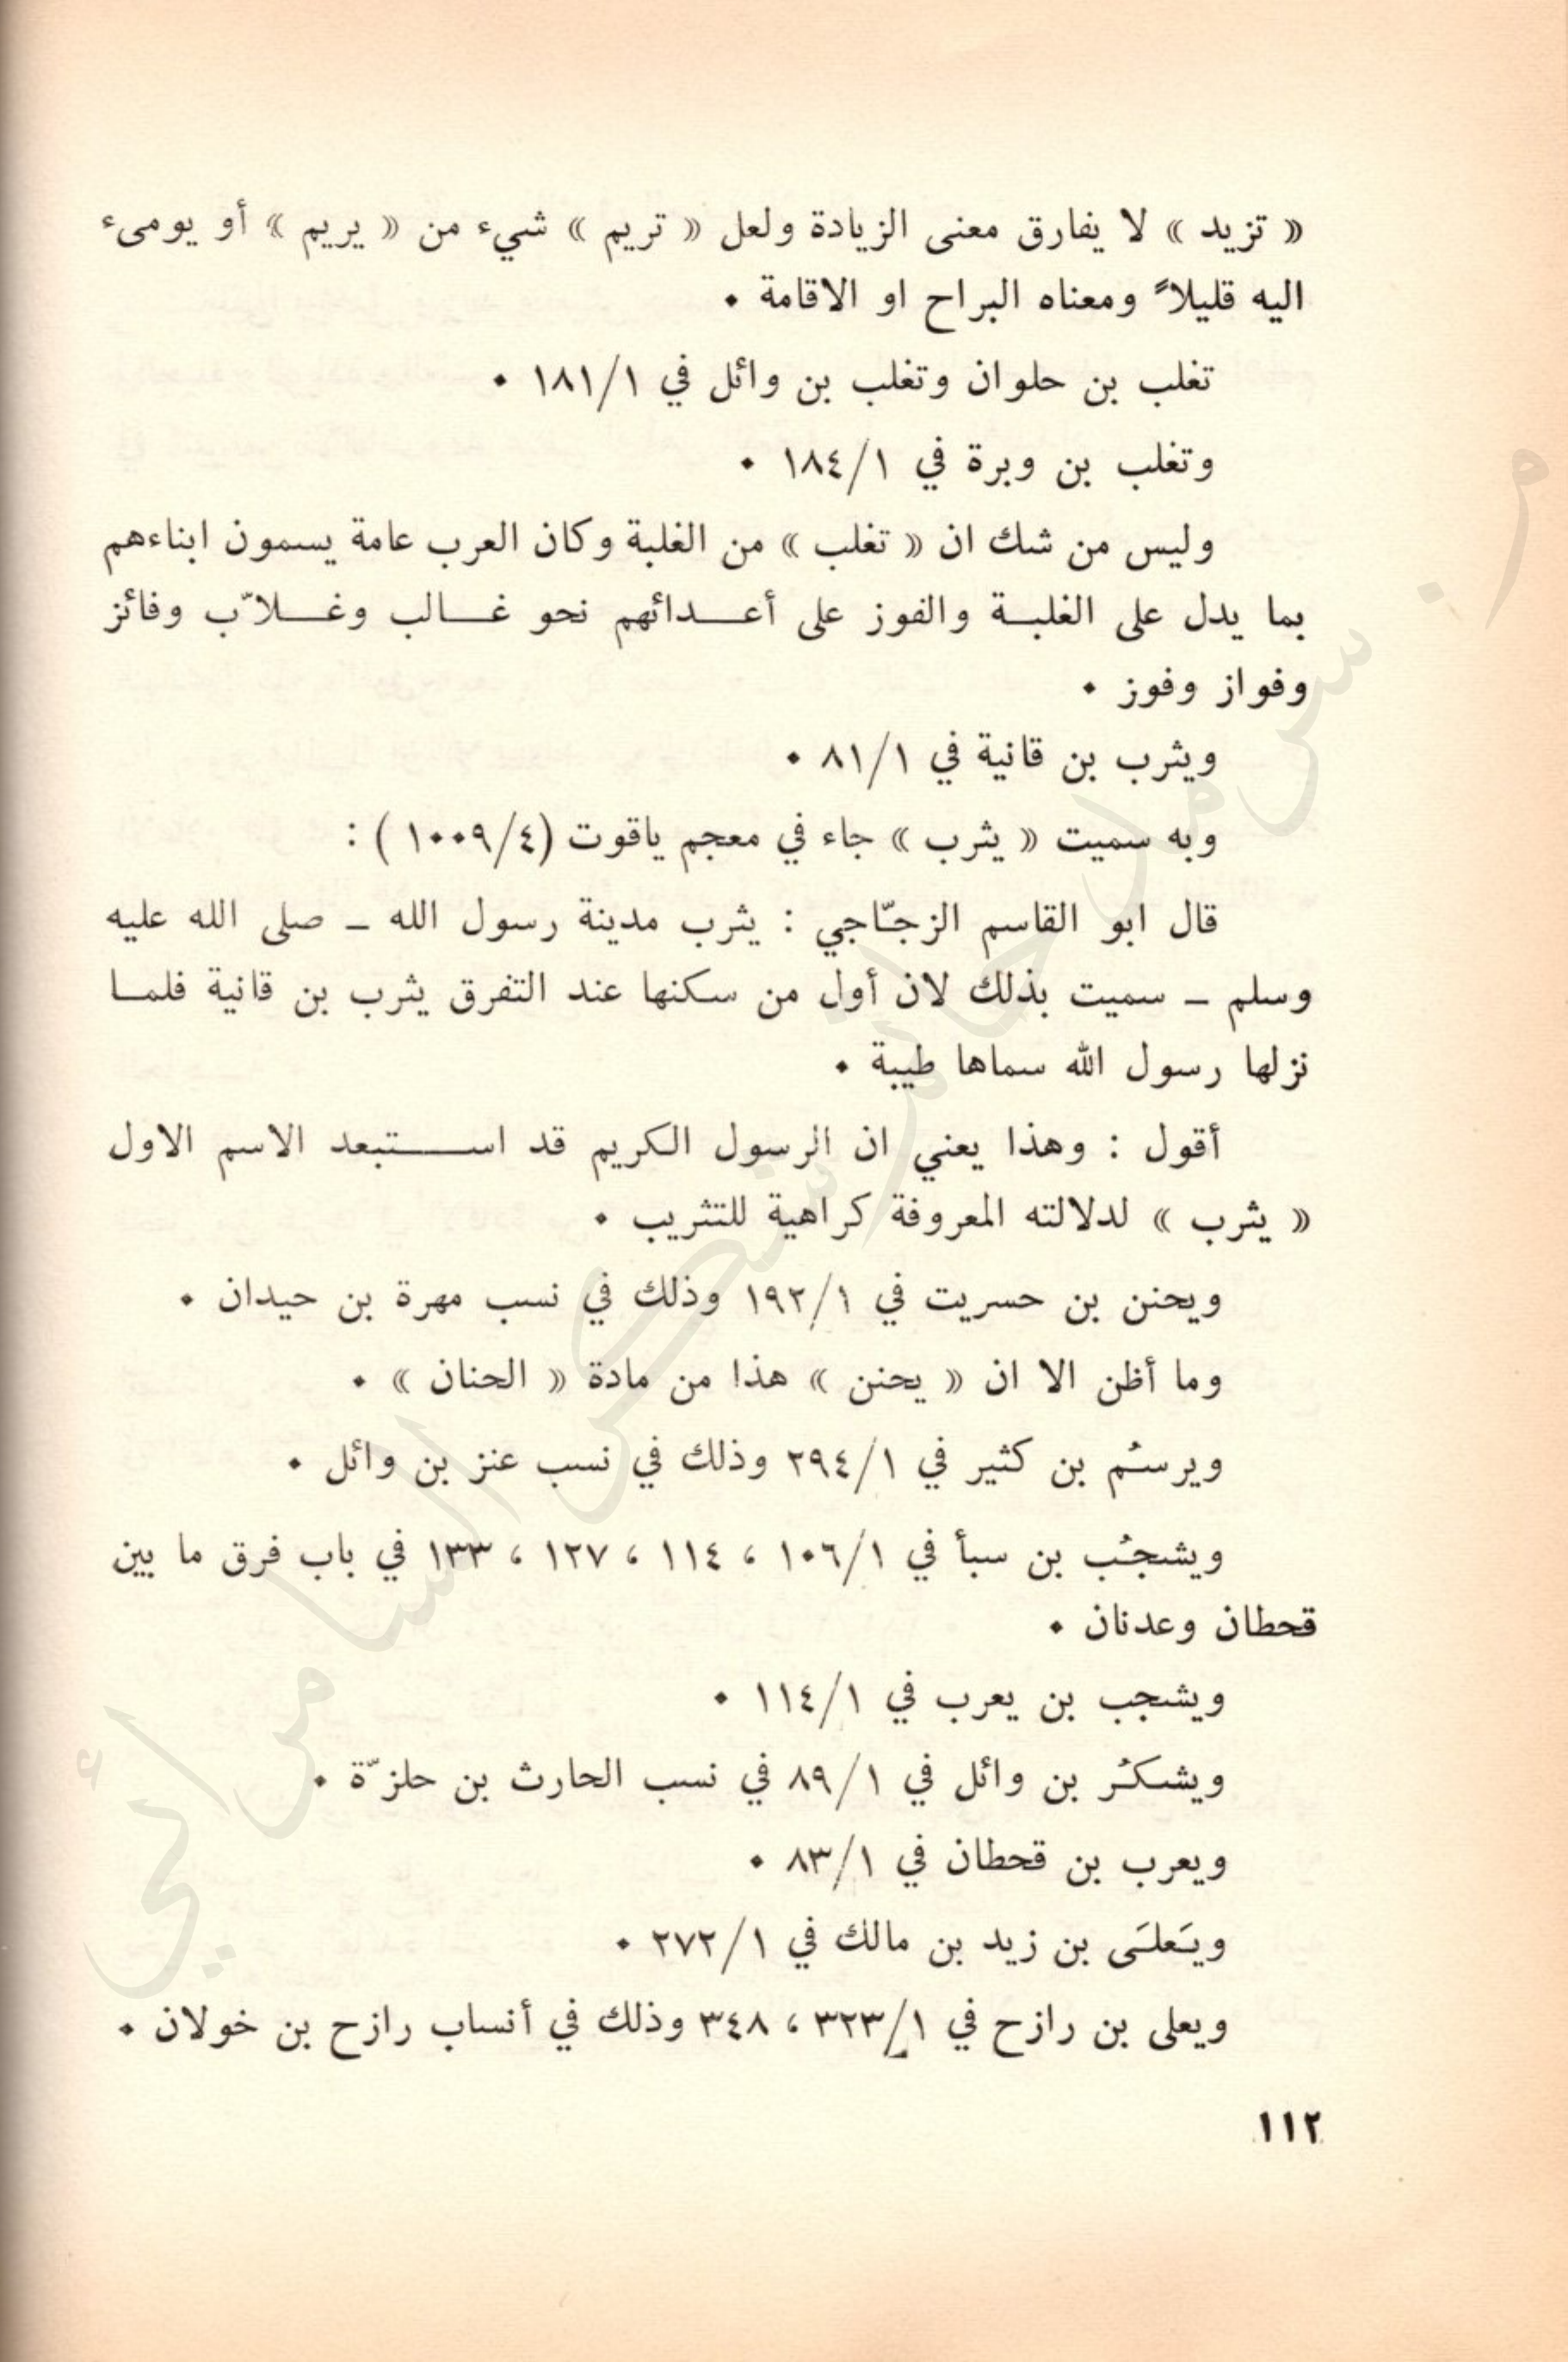 « تزيد » لا يفارق معنى الزيادة ولعل « تريم » شيء من « يريم » أو يومىء
اليه قليلاً ومعناه البراح او الاقامة ٠
تغلب بن حلوان وتغلب بن وائل في ١/١٨١ ٠
وتغلب بن وبرة في ١/١٨٤ ٠
وليس من شك ان « تغلب » من الغلبة وكان العرب عامة يسمون ابناءهم
بما يدل على الغلبة والفوز على أعدائهم نحو غالب وغلاّب وفائز
وفواز وفوز ٠
ويثرب بن قانية في ١/٨١ ٠
وبه سميت « يثرب » جاء في معجم ياقوت (٤/١٠٠٩ ) :
قال ابو القاسم الزجّاجي : يثرب مدينة رسول الله ـ صلى الله عليه
وسلم ـ سميت بذلك لان أول من سكنها عند التفرق يثرب بن قانية فلما
نزلها رسول الله سماها طيبة ٠
أقول : وهذا يعني ان الرسول الكريم قد استبعد الاسم الاول
« يثرب » لدلالته المعروفة كراهية للتثريب ٠
ويحنن بن حسريت في ١/١٩٢ وذلك في نسب مهرة بن حيدان ٠
وما أظن الا ان « يحنن » هذا من مادة « الحنان » ٠
ويرسُم بن كثير في ١/٢٩٤ وذلك في نسب عنز بن وائل ٠
ويشجُب بن سبأ في ١/١٠٦ ، ١١٤ ، ١٢٧ ، ١٣٣ في باب فرق ما بين
قحطان وعدنان ٠
ويشجب بن يعرب في ١/١١٤ ٠
ويشكُر بن وائل في ١/٨٩ في نسب الحارث بن حلزّة ٠
ويعرب بن قحطان في ١/٨٣ ٠
ويَعلَى بن زيد بن مالك في ١/٢٧٢ ٠
ويعلى بن رازح في ١/٣٢٣ ، ٣٤٨ وذلك في أنساب رازح بن خولان ٠
١١٢